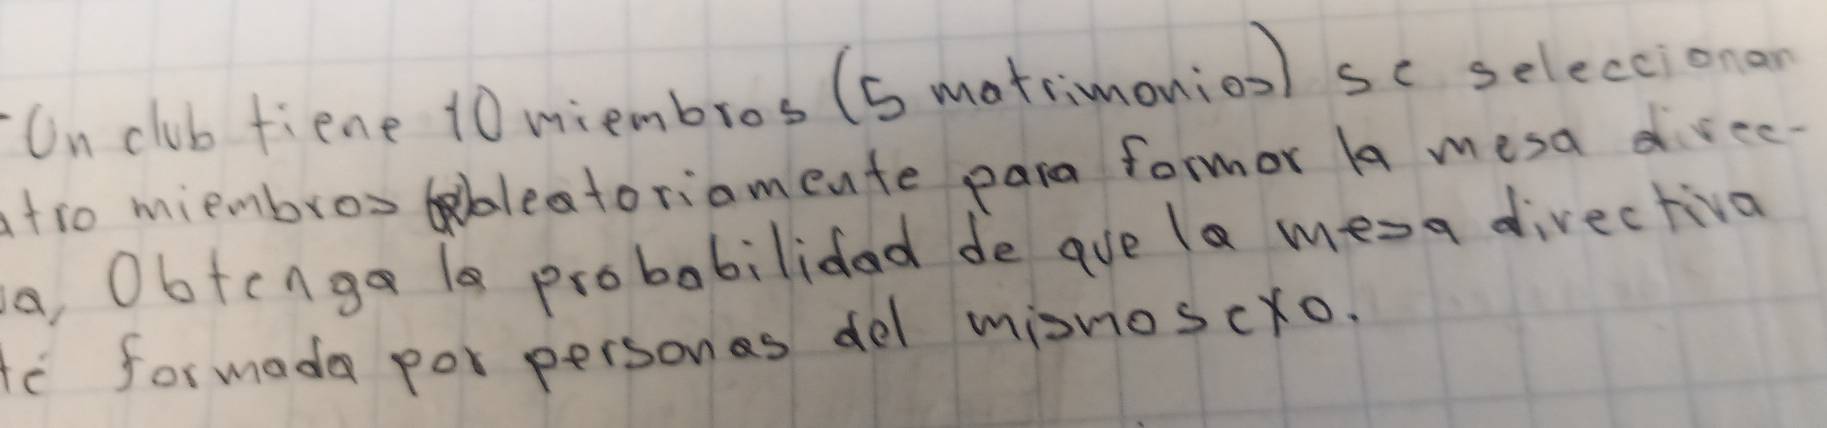 Un club tiene 10 miembros (5 matrimonios) se seleccionan
atro miembros aleatoriamente para formar la mesa direc-
a, Obtenga la probabilidad de que la mesa directiva
té formada por personas del mismo sexo.